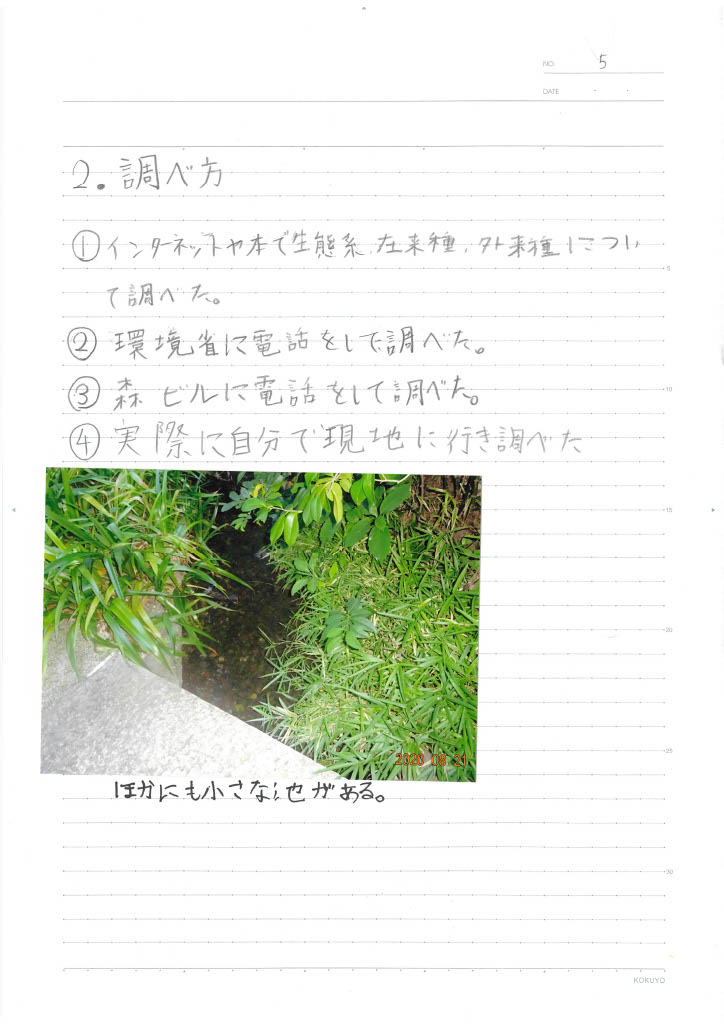 NO. 5
DATE ・ ・
2. 調べ方
① インターネットや本で生態系、在来種、外来種につい
て調べた。
② 環境省に電話をして調べた。
③ 森ビルに電話をして調べた。
④ 実際に自分で現地に行き調べた
5
10
15
20
2020 08 21
25
ほかにも小さな池がある。
30
KOKUYO